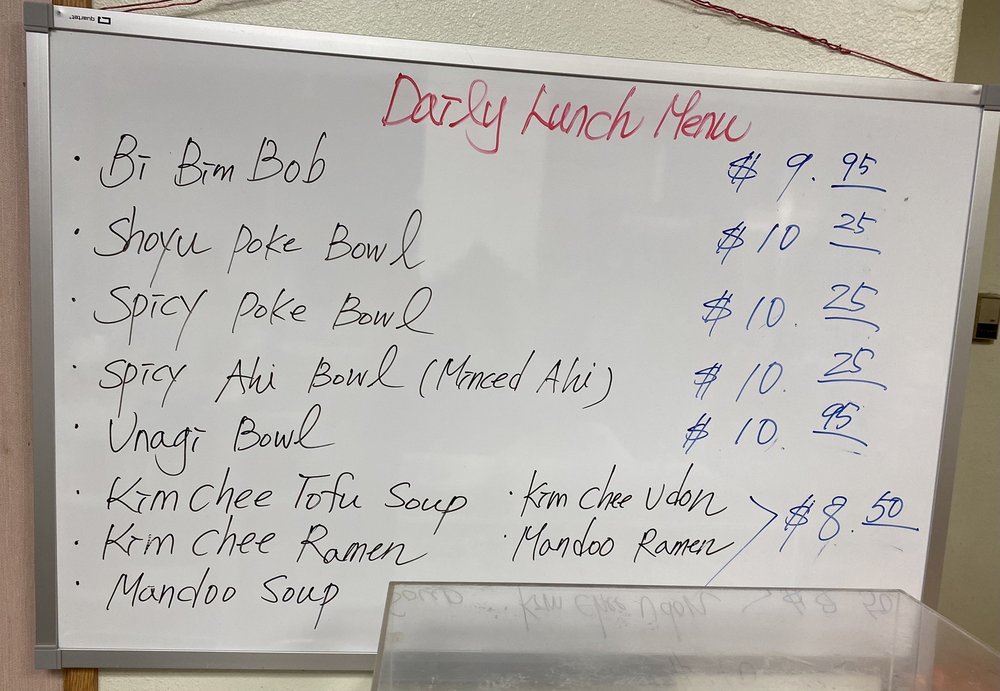 quartet
Daily Lunch Menu
· Bi Bim Bob $ 9.95
· Shoyu Poke Bowl $ 10 25
· Spicy Poke Bowl $ 10.25
· Spicy Ahi Bowl (Minced Ahi) $ 10.25
· Unagi Bowl $ 10.95
· Kim Chee Tofu Soup · Kim Chee Udon $ 8.50
· Kim Chee Ramen · Mandoo Ramen
· Mandoo Soup